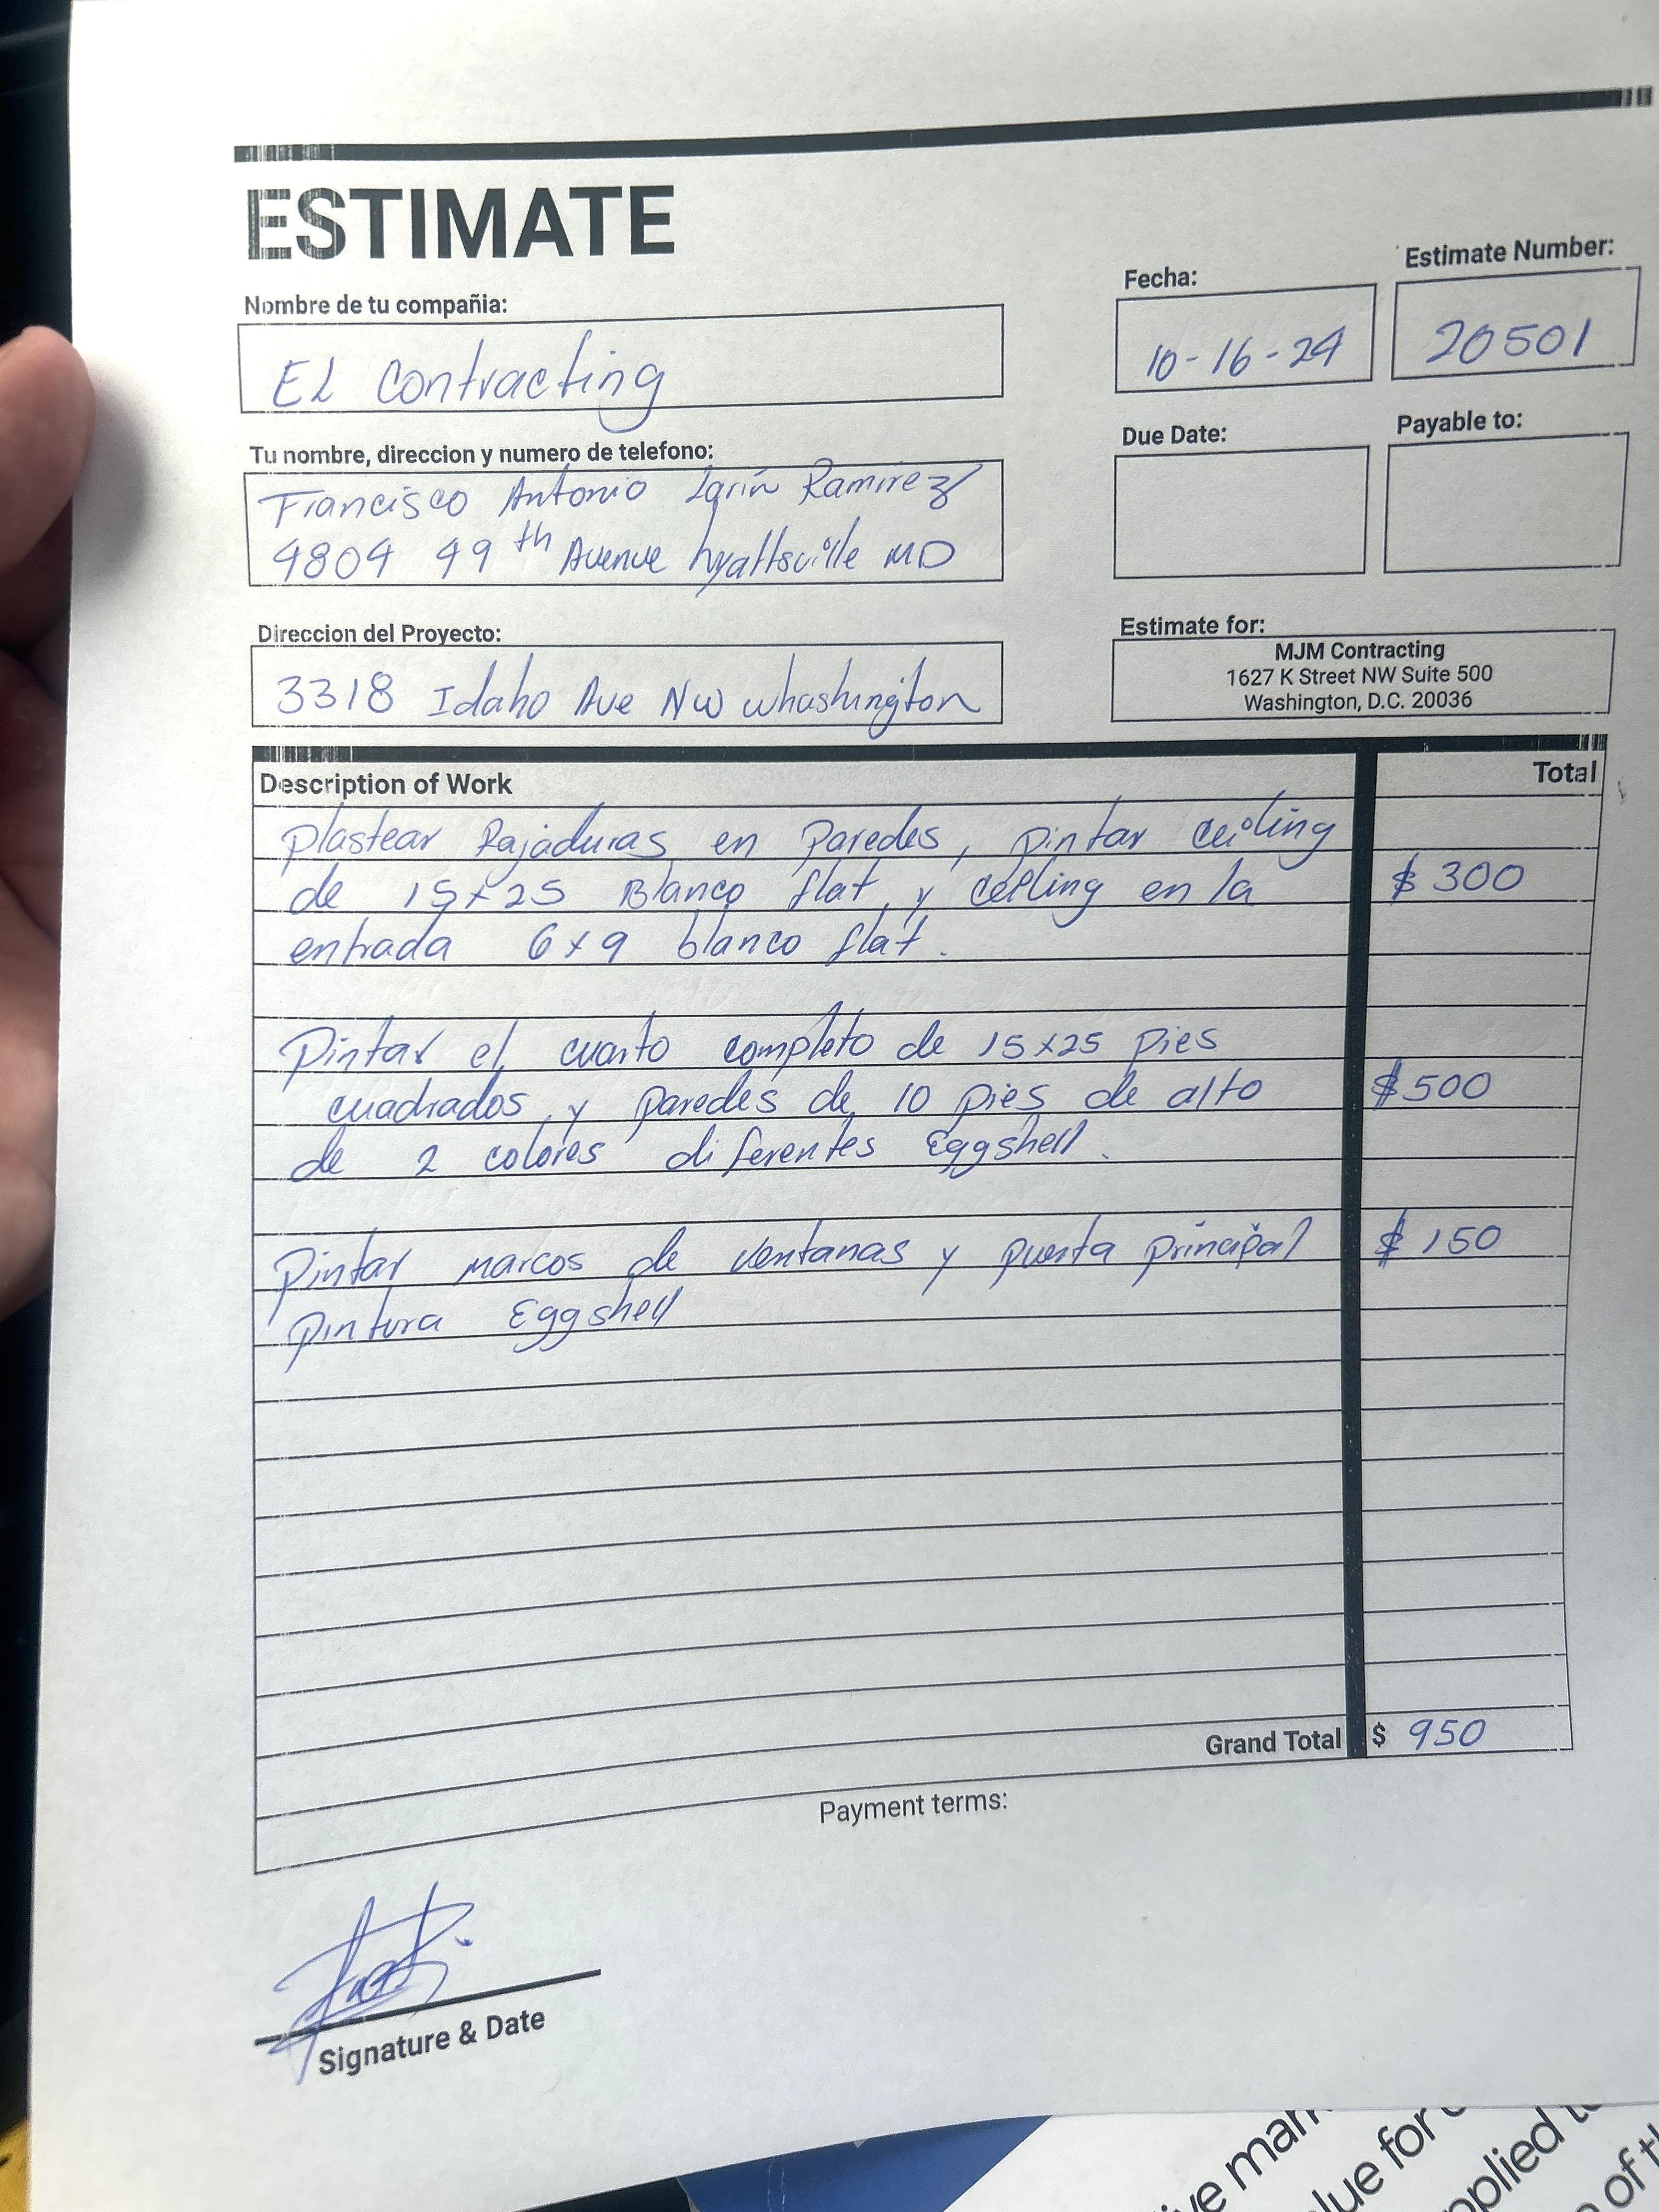 ESTIMATE
Nombre de tu compañia:
EL Contracting
Fecha:
10-16-24
Estimate Number:
20501
Tu nombre, direccion y numero de telefono:
Francisco Antonio Larín Ramirez
4804 49th Avenue hyattsville MD
Due Date:
Payable to:
Direccion del Proyecto:
3318 Idaho Ave NW whashington
Estimate for:
MJM Contracting
1627 K Street NW Suite 500
Washington, D.C. 20036
Description of Work
Total
plastear Rajaduras en Paredes, pintar ceiling
de 15x25 Blanco flat, y ceiling en la
$ 300
entrada 6x9 blanco flat.
Pintar el cuarto completo de 15x25 Pies
cuadrados, y paredes de 10 pies de alto
$500
de 2 colores diferentes Eggshell.
Pintar marcos de ventanas y puerta principal
$ 150
pintura Eggshell
Grand Total $ 950
Payment terms:
Signature & Date
ve mar
lue for
pplied to
of th